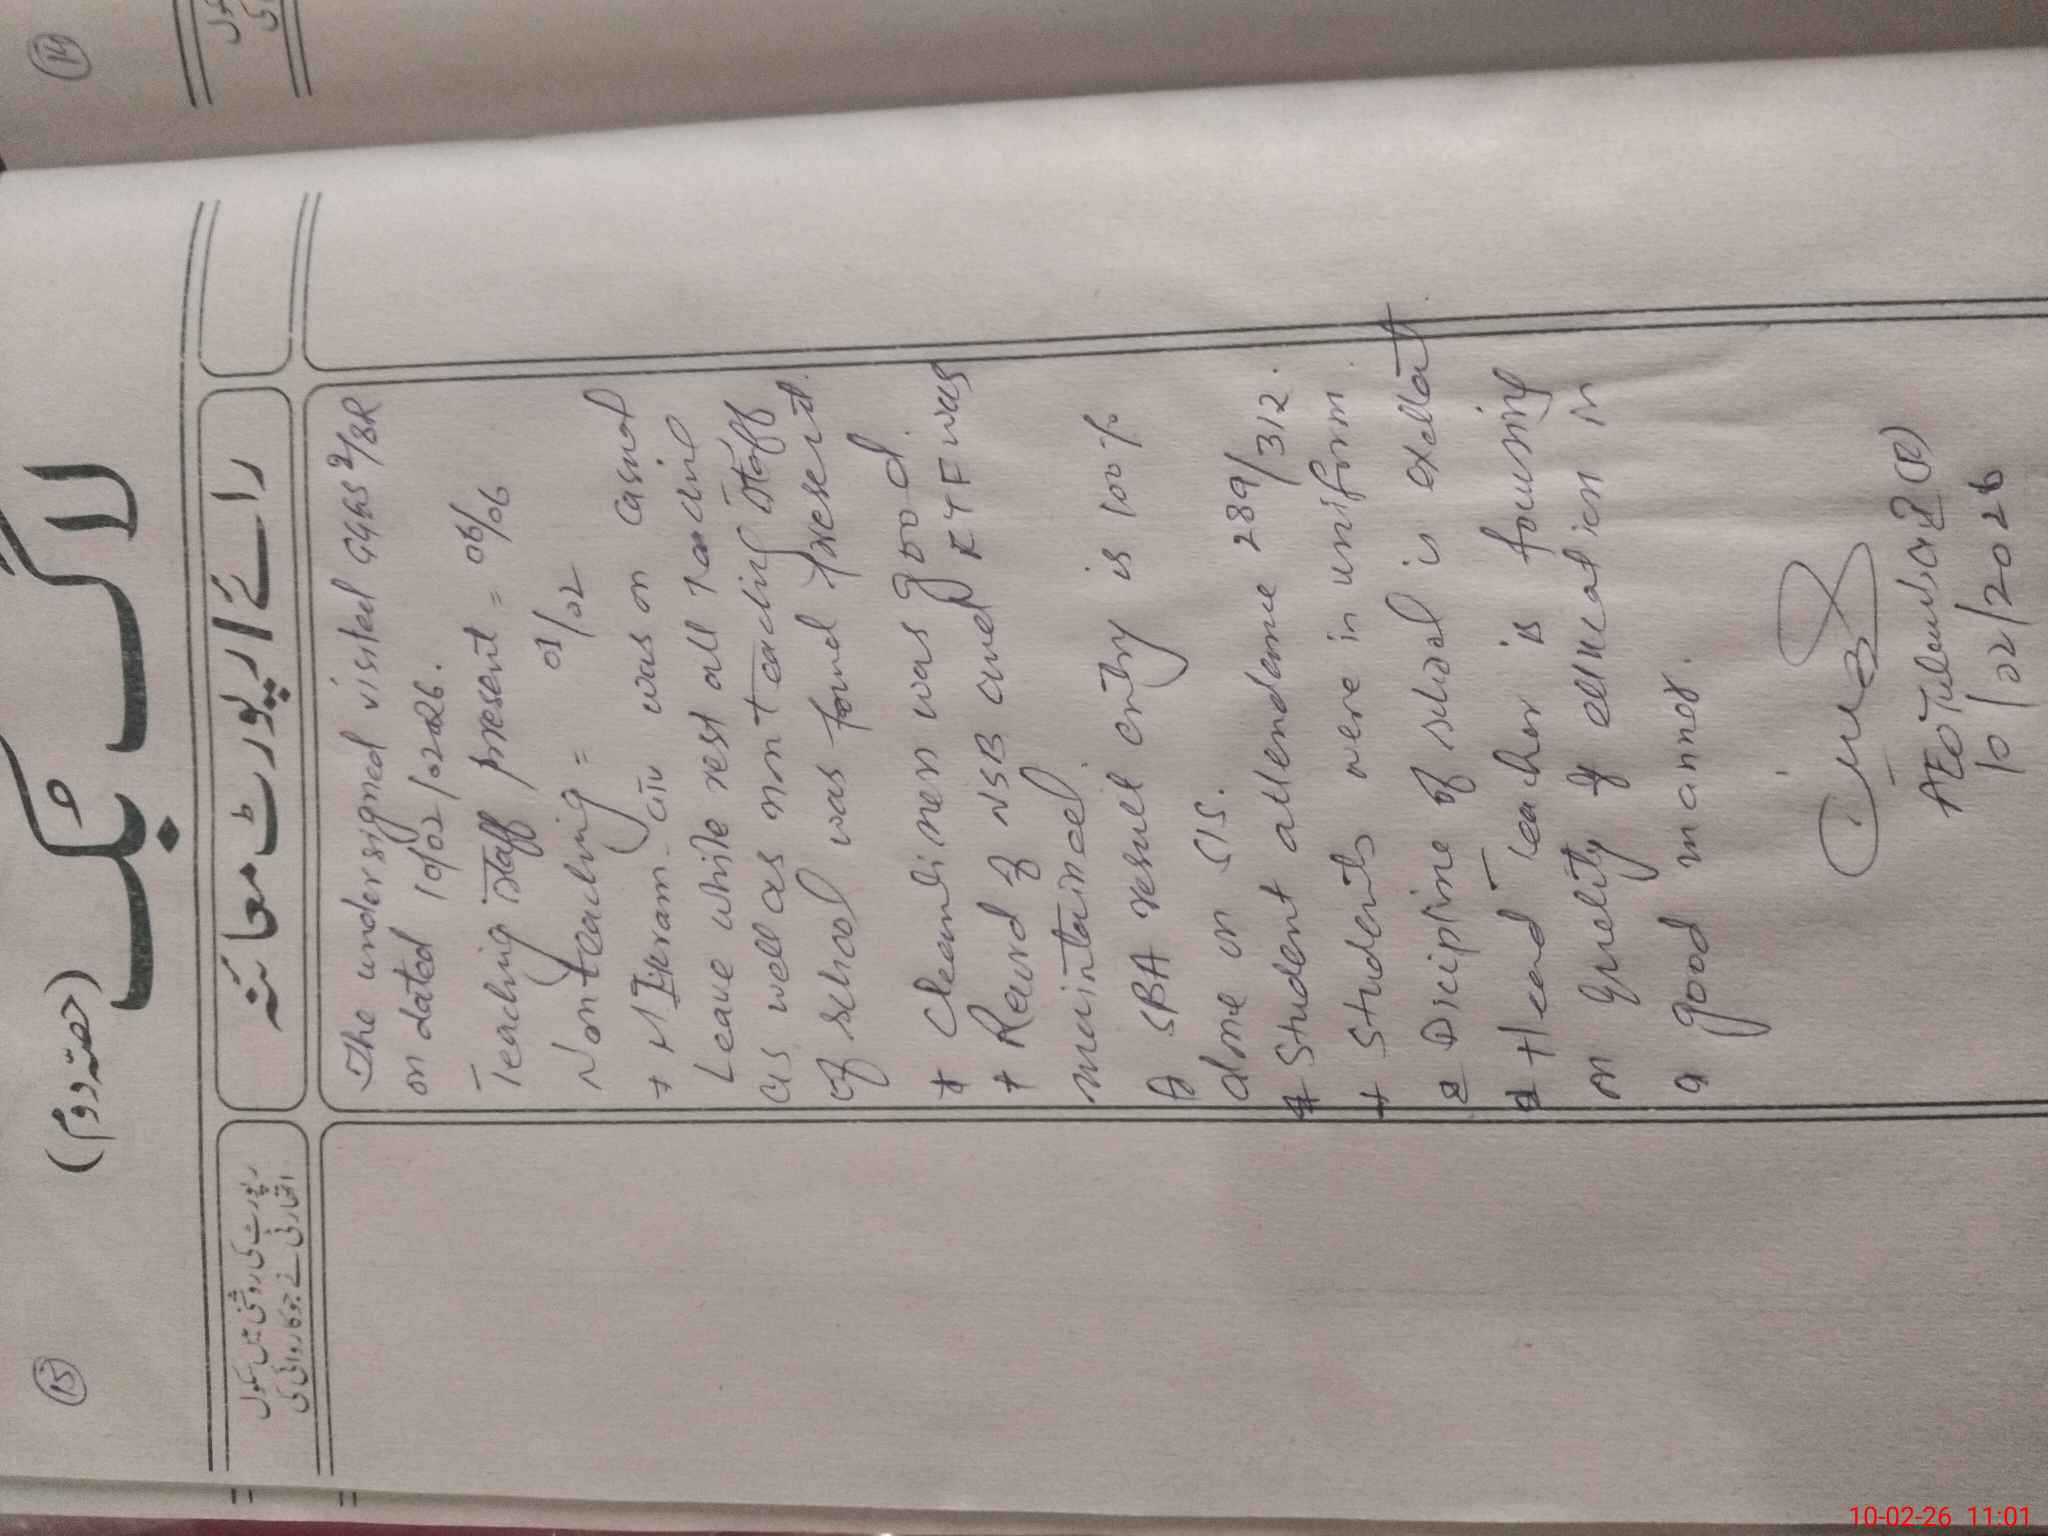 15
(حصہ دوم)
لاگ بک
رپورٹ کی روشنی میں سکول
اتھارٹی نے جو کاروائی کی
رائے / رپورٹ معائنہ
The undersigned visited GGHS 9/8R
on dated 10/02/2026.
Teaching staff present = 06/06
Non teaching = 01/02
+ M. Ikram was on casual
Leave while rest all teaching
as well as non teaching staff
of school was found present.
* Cleanliness was good.
+ Record of NSB and FTF was
maintained
SBA result entry is 100%
done on SIS.
* Student attendance 289/312.
* Students were in uniform
Discipline of school is excellent
Head Teacher is focusing
on quality of education in
a good manner.
AEO Tulamba (R)
10/02/2026
14
10-02-26 11:01